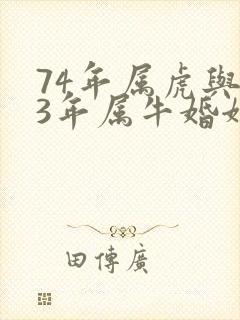 74年属虎與
3年属牛婚
田傳廣